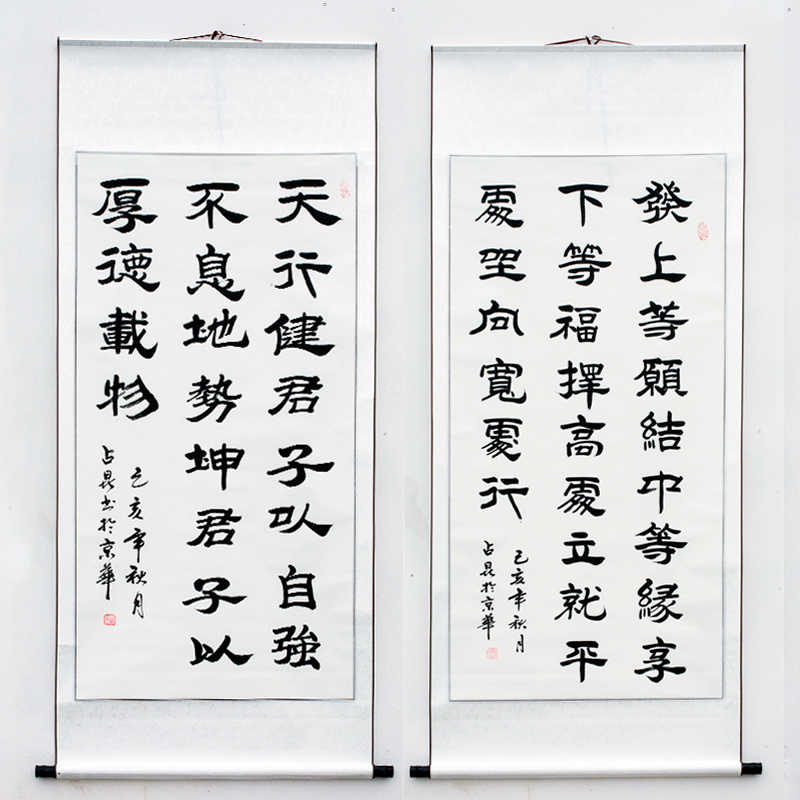 發上等願結中等緣享
下等福擇高處立就平
處坐向寬處行
己亥年秋月
占昆於京華
天行健君子以自強
不息地勢坤君子以
厚德載物
己亥年秋月
占昆书於京華